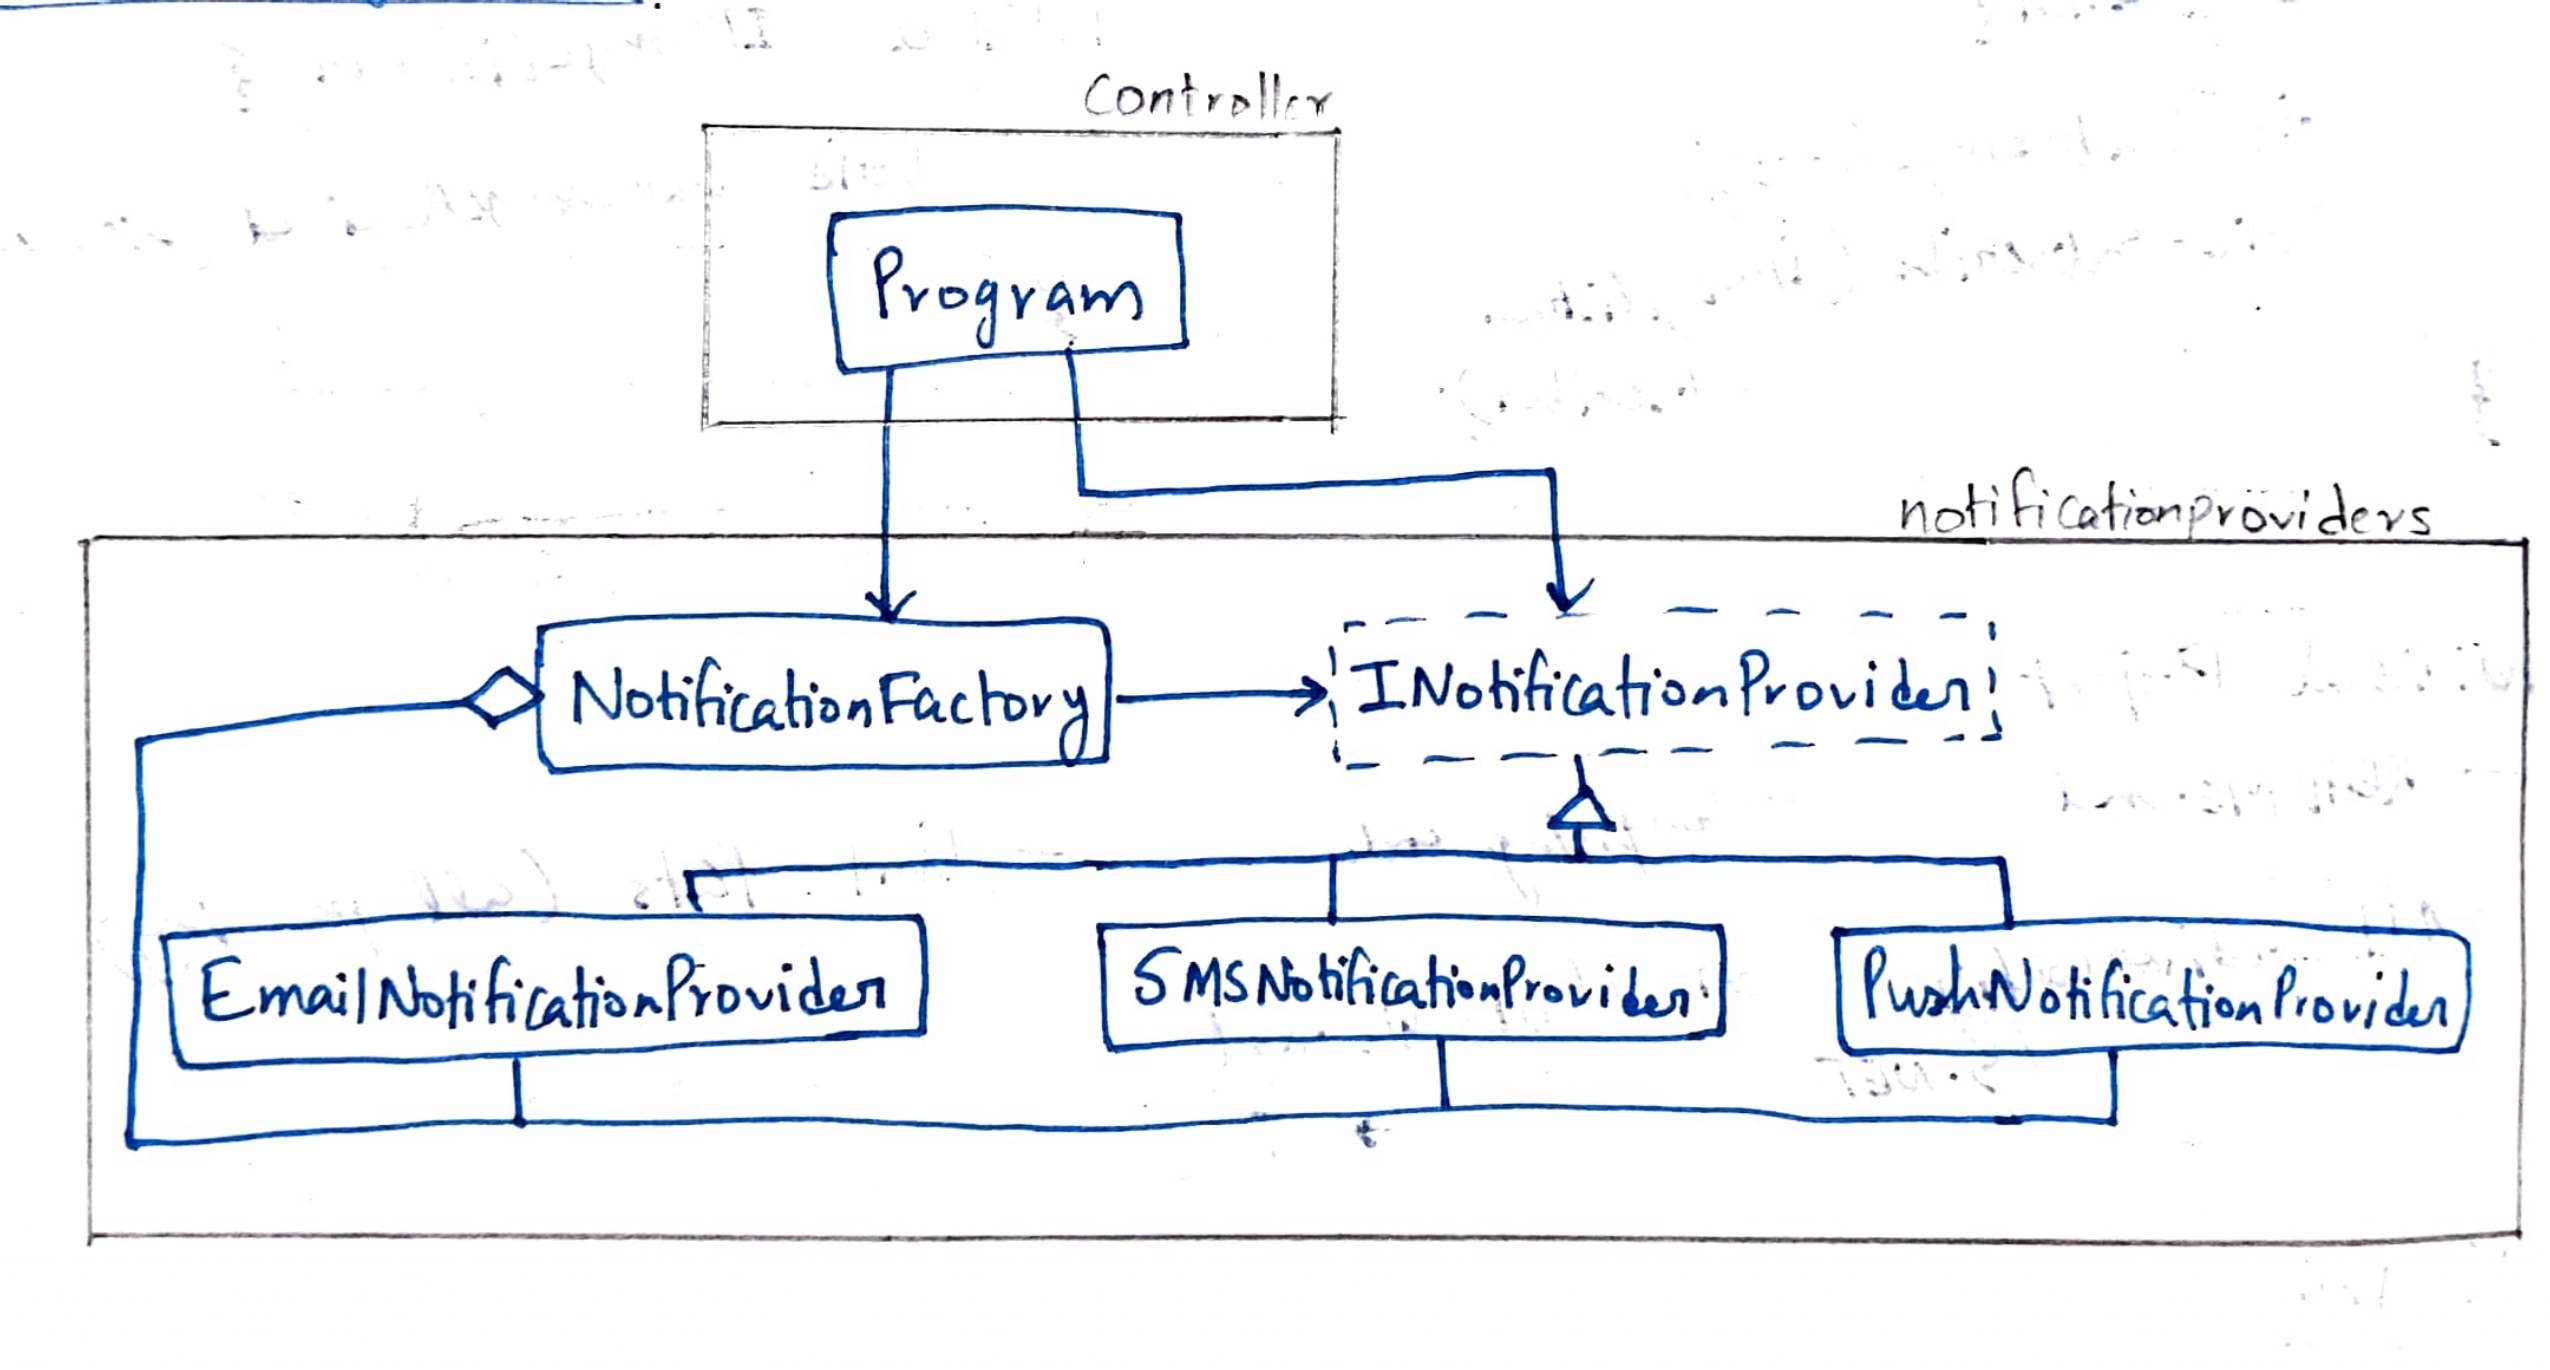 Controller
Program
notificationproviders
NotificationFactory
INotificationProvider
EmailNotificationProvider
SMSNotificationProvider
PushNotificationProvider